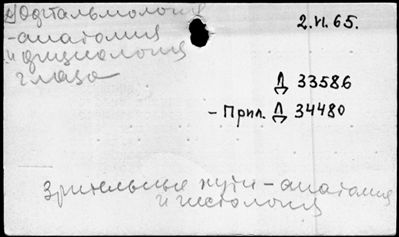 2) Офтальмология
- анатомия
и физиология
глаза
2.VI.65.
Д 33586
- Прил. Д 34480
Зрительные пути - анатомия
и гистология